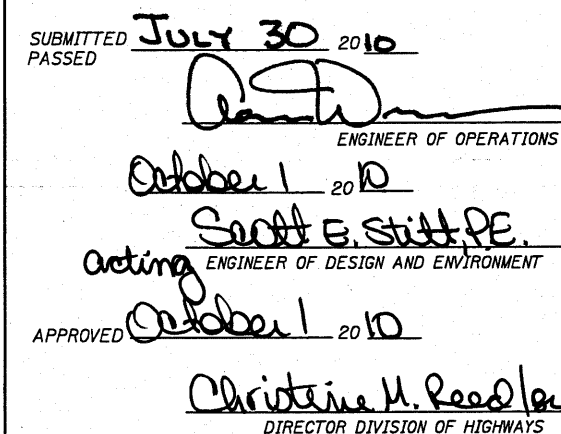 SUBMITTED JULY 30 2010
PASSED
ENGINEER OF OPERATIONS
October 1 2010
Scott E. Stitt, P.E.
acting ENGINEER OF DESIGN AND ENVIRONMENT
APPROVED October 1 2010
Christine M. Reed
DIRECTOR DIVISION OF HIGHWAYS